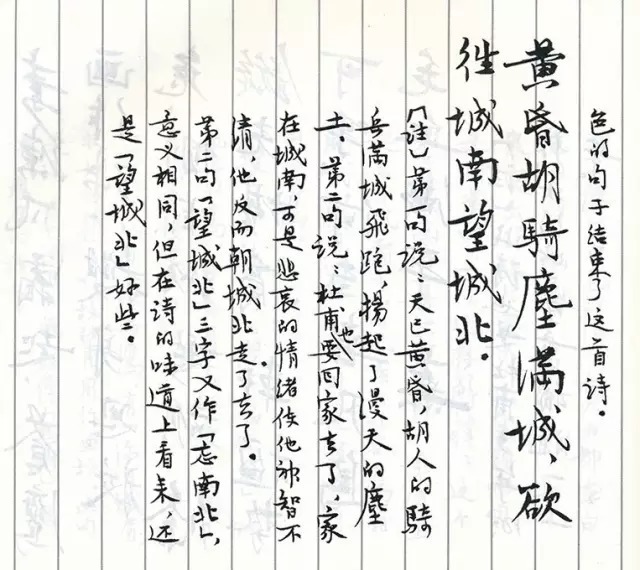 色的句子结束了这首诗。
黄昏胡騎塵满城、欲
往城南望城北.
「註」第一句说：天已黄昏，胡人的騎
兵满城飛跑，揚起了漫天的塵
土。第二句说：杜甫也要回家去了，家
在城南，可是悲哀的情绪使他神智不
清，他反而朝城北走了去了。
第二句「望城北」三字又作「忘南北」，
意义相同，但在诗的味道上看来，还
是「望城北」好些。